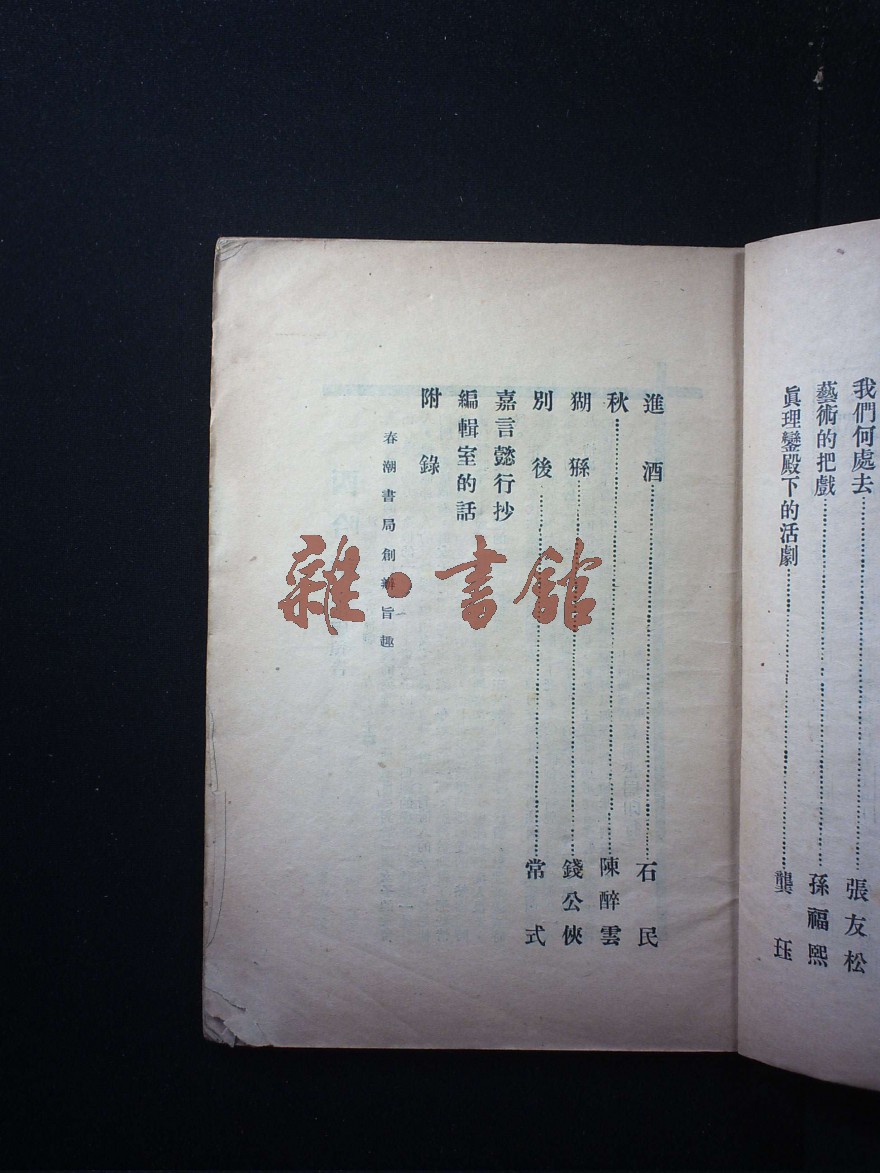 我們何處去……張友松
藝術的把戲……孫福熙
眞理鑾殿下的活劇……龔珏
進酒……石民
秋……陳醉雲
猢猻……錢公俠
別後……常式
嘉言懿行抄
編輯室的話
附錄
春潮書局創辦旨趣
雜·書館